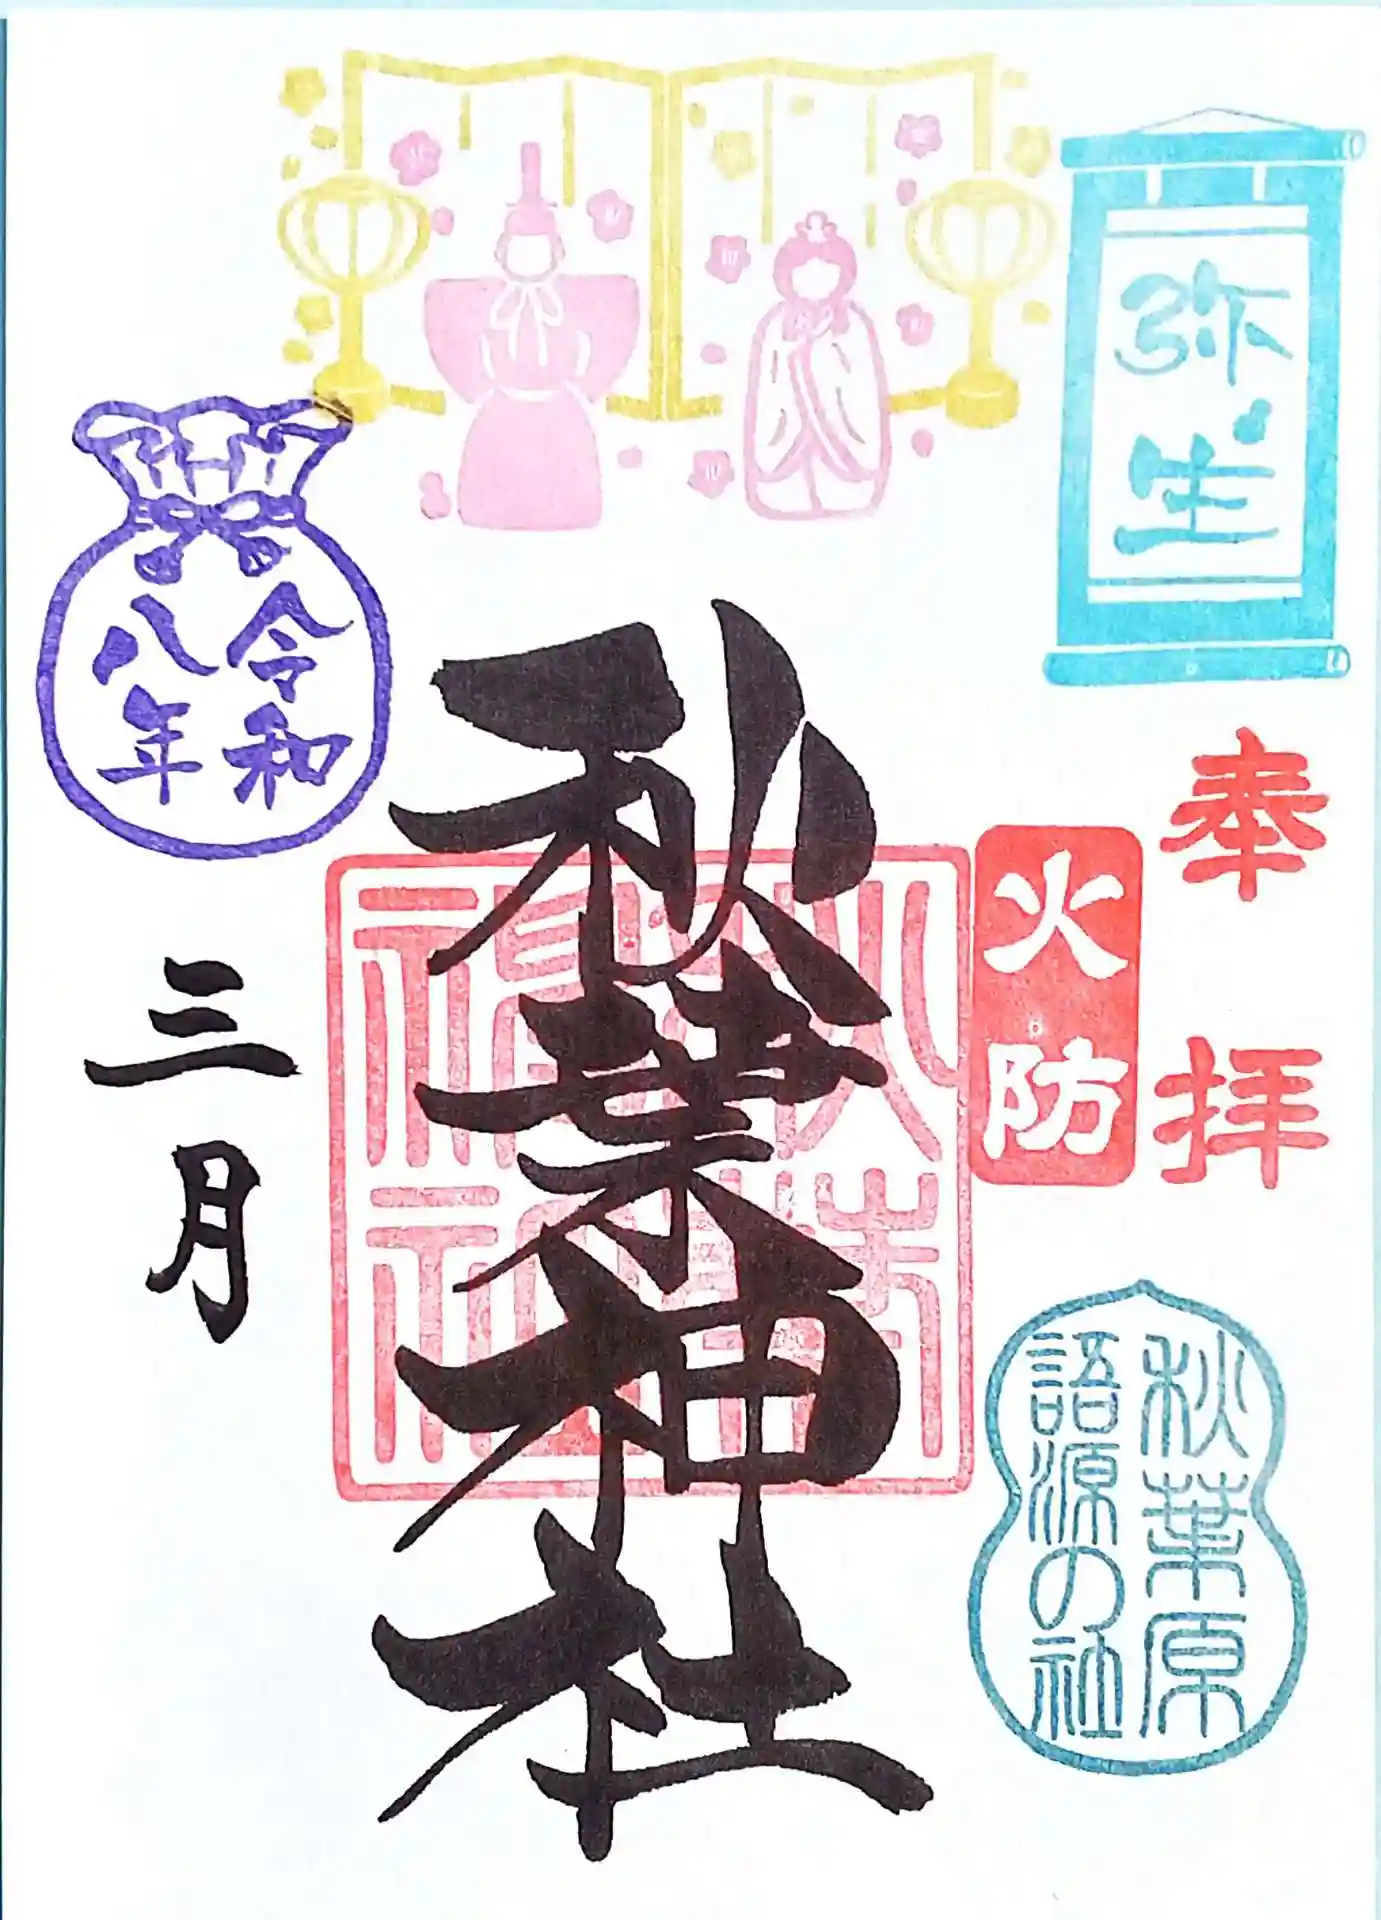 弥生
奉拝
火防
秋葉原
語源の社
秋葉神社
秋葉
神社
令和
八年
三月